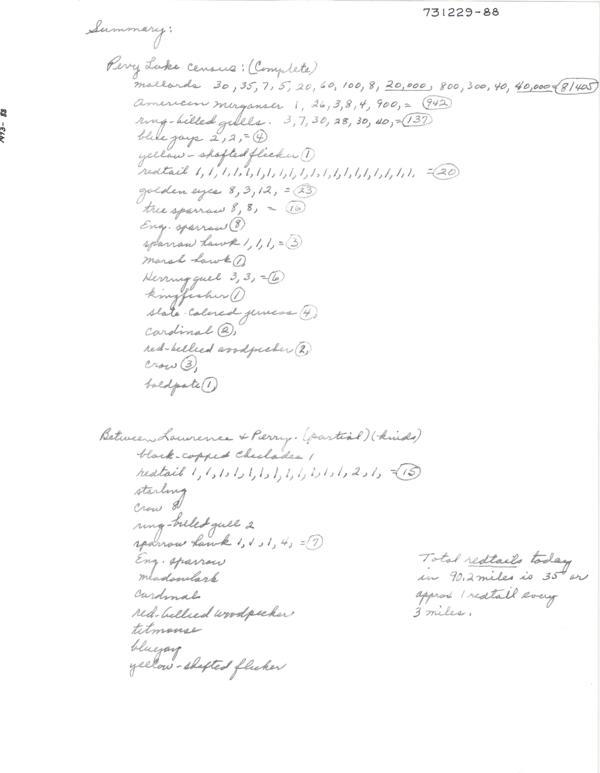 731229-88
Summary:
1973-88
Perry Lake Census: (Complete)
mallards 30, 35, 7, 5, 20, 60, 100, 8, 20,000, 800, 300, 40, 40,000 = 81405
American merganser 1, 26, 3, 8, 4, 900, = 942
ring-billed gulls. 3, 7, 30, 28, 30, 40, = 137
blue jays 2, 2, = 4
yellow-shafted flicker 1
redtail 1, 1, 1, 1, 1, 1, 1, 1, 1, 1, 1, 1, 1, 1, 1, 1, 1, 1, 1, 1. = 20
golden eyes 8, 3, 12, = 23
tree sparrow 8, 8, = 16
Eng. sparrow 8
sparrow hawk 1, 1, 1, = 3
marsh hawk 1,
Herring gull 3, 3, = 6
kingfisher 1
slate-colored juncos 4,
cardinal 2,
red-bellied woodpecker 2,
crow 3,
baldpate 1,
Between Lawrence & Perry. (partial) (kinds)
black-capped chickadee 1
redtail 1, 1, 1, 1, 1, 1, 1, 1, 1, 1, 1, 1, 2, 1, = 15
starling
crow 8
ring-billed gull 2
sparrow hawk 1, 1, 1, 4, = 7
Eng. sparrow
meadowlark
cardinal
red-bellied woodpecker
titmouse
bluejay
yellow-shafted flicker
Total redtails today
in 90.2 miles is 35 or
approx 1 redtail every
3 miles.